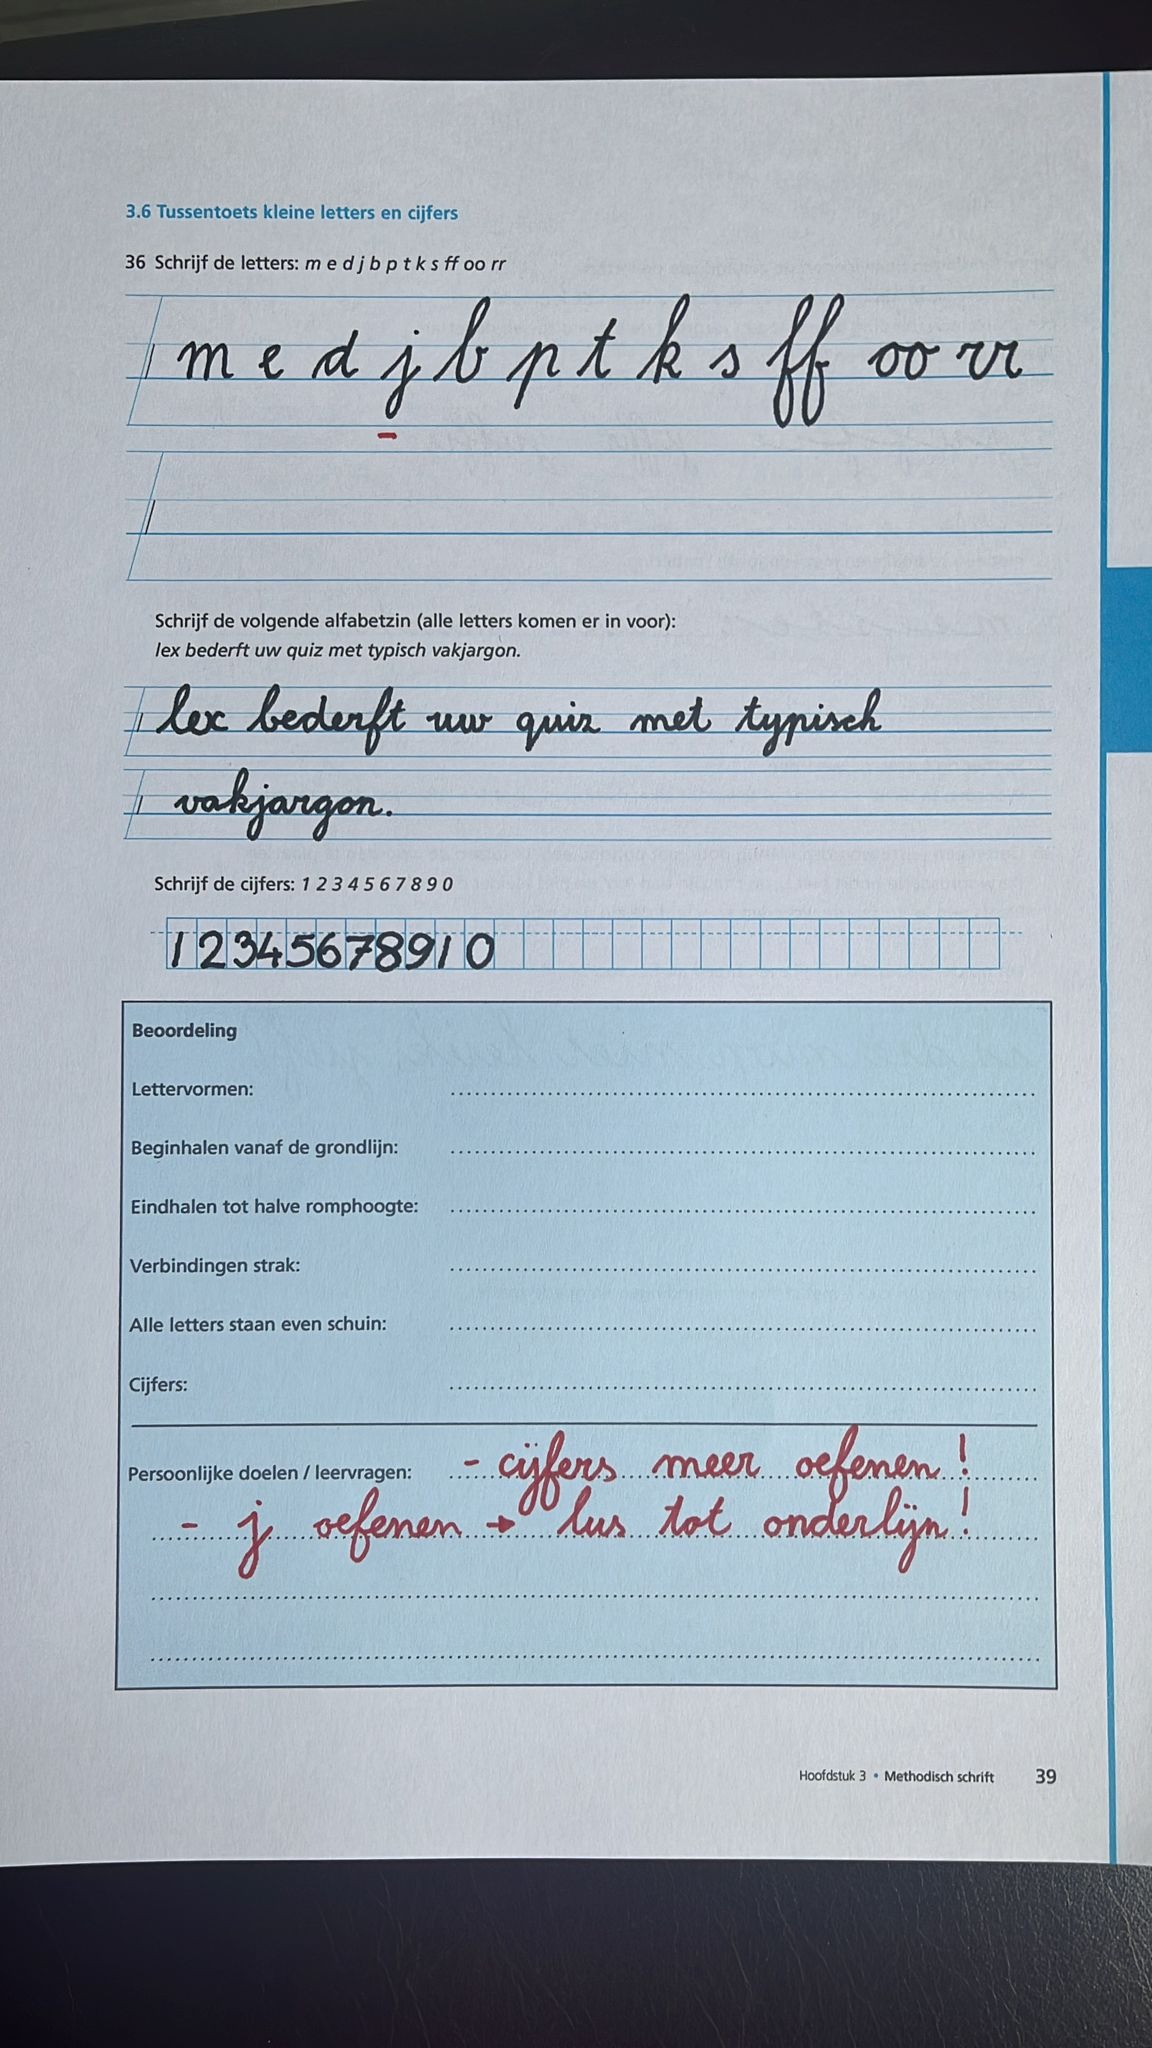 3.6 Tussentoets kleine letters en cijfers
36 Schrijf de letters: m e d j b p t k s ff oo rr
m e d j b p t k s ff oo rr
Schrijf de volgende alfabetzin (alle letters komen er in voor):
lex bederft uw quiz met typisch vakjargon.
lex bederft uw quiz met typisch
vakjargon.
Schrijf de cijfers: 1 2 3 4 5 6 7 8 9 0
1 2 3 4 5 6 7 8 9 1 0
Beoordeling
Lettervormen:
Beginhalen vanaf de grondlijn:
Eindhalen tot halve romphoogte:
Verbindingen strak:
Alle letters staan even schuin:
Cijfers:
Persoonlijke doelen / leervragen: - cijfers meer oefenen!
- j oefenen → lus tot onderlijn!
Hoofdstuk 3 • Methodisch schrift 39